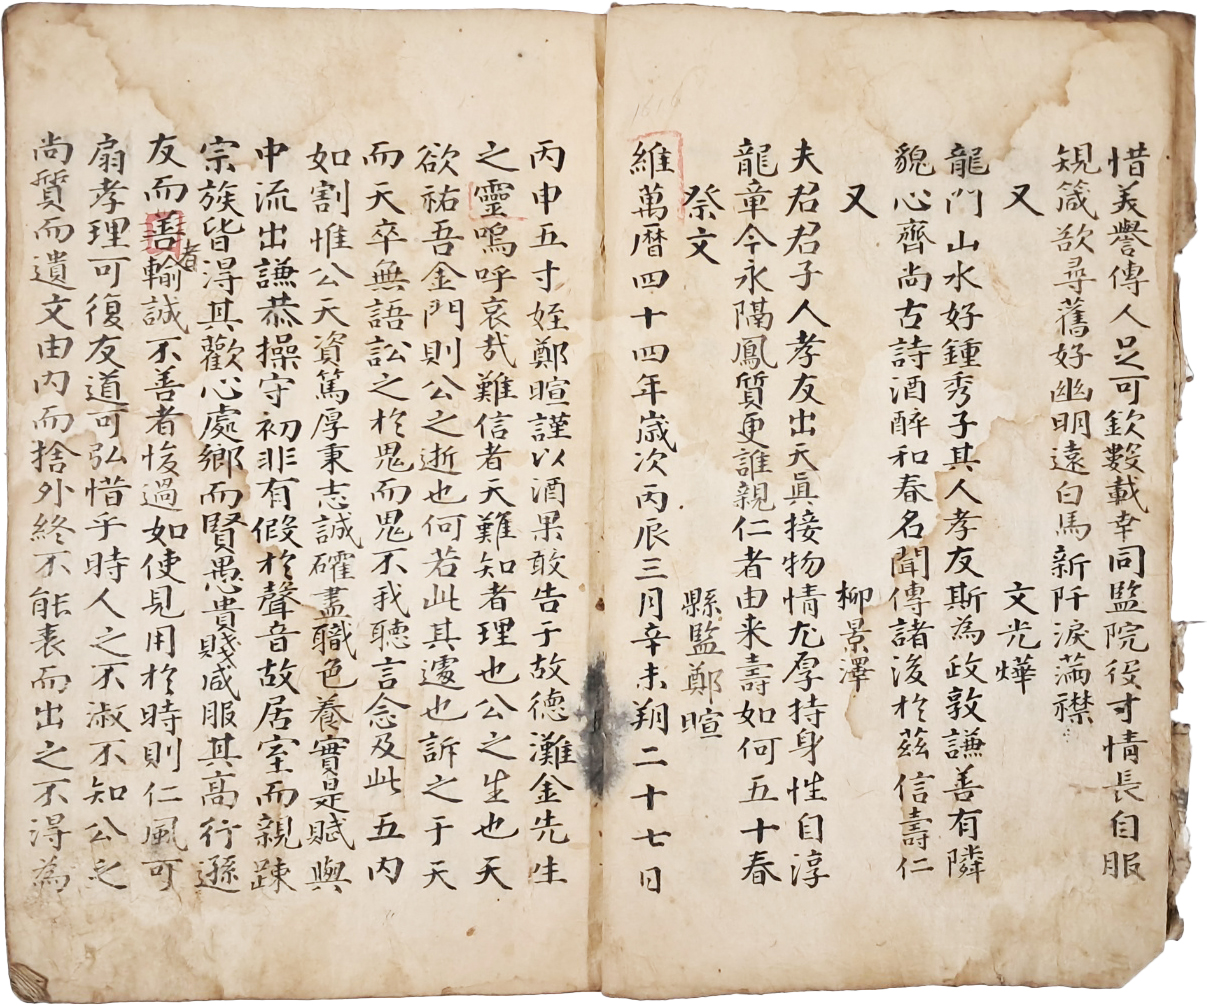 惜美譽傳人足可欽數載幸同監院役寸情長自服
䂓箴欲尋舊好幽明遠白馬新阡淚滿襟
又　文光燁
龍門山水好鍾秀子其人孝友斯為政敦謙善有隣
貌心齊尚古詩酒醉和春名聞傳諸後於玆信壽仁
又　柳景澤
夫君君子人孝友出天眞接物情尢厚持身性自淳
龍章今永隔鳳質更誰親仁者由来壽如何五十春
祭文　縣監鄭暄
維萬曆四十四年歲次丙辰三月辛未朔二十七日
丙申五寸姪鄭暄謹以酒果敢告于故德灘金先生
之靈嗚呼哀㢤難信者天難知者理也公之生也天
欲祐吾金門則公之逝也何若此其遽也訴之于天
而天卒無語訟之於鬼而鬼不我聽言念及此五內
如割惟公天資篤厚秉志誠確盡職色養實是賦與
中流出謙恭操守初非有假於聲音故居室而親踈
宗族皆得其歡心處鄉而賢愚貴賤咸服其高行遜
友而善者輸誠不善者悛過如使見用於時則仁風可
扇孝理可復友道可弘惜乎時人之不淑不知公之
尚質而遺文由內而捨外終不能表而出之不得為